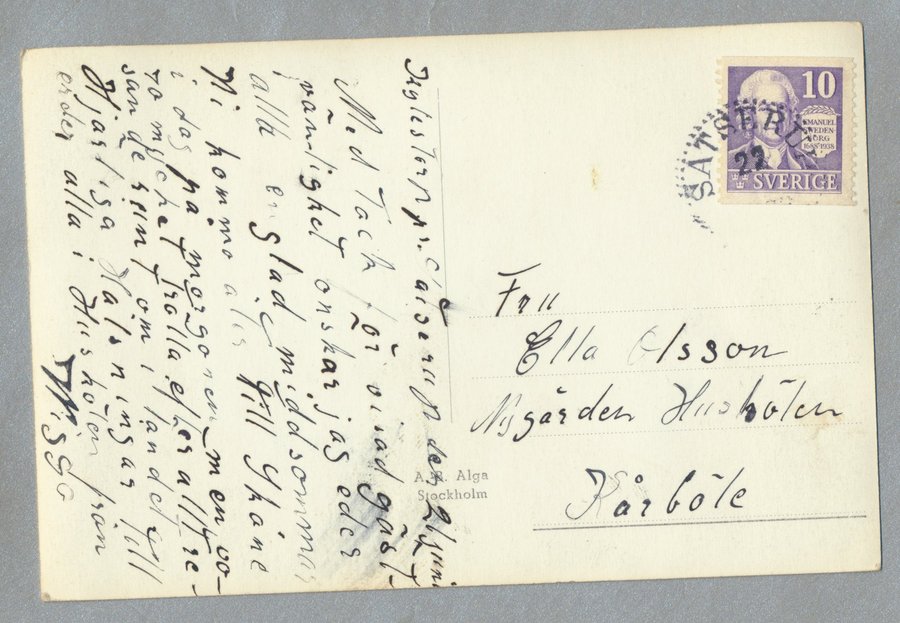 Kylestorp pr. Sätserup den 21 juni
Med Tack för visad gäst-
vänlighet önskar jag eder
alla en glad midsommar
Vi kommo åter till Skåne
i dag på morgonen, men vo-
ro mycket trötta efter allt re-
sande runt om i landet
Hjärtliga Hälsningar till
eder alla i Huskölen från
Viggo
A.-B. Alga
Stockholm
10
EMANUEL
SWEDEN-
BORG
1688 1938
SVERIGE
22
Fru
Ella Olsson
Nygården Huskölen
Kårböle